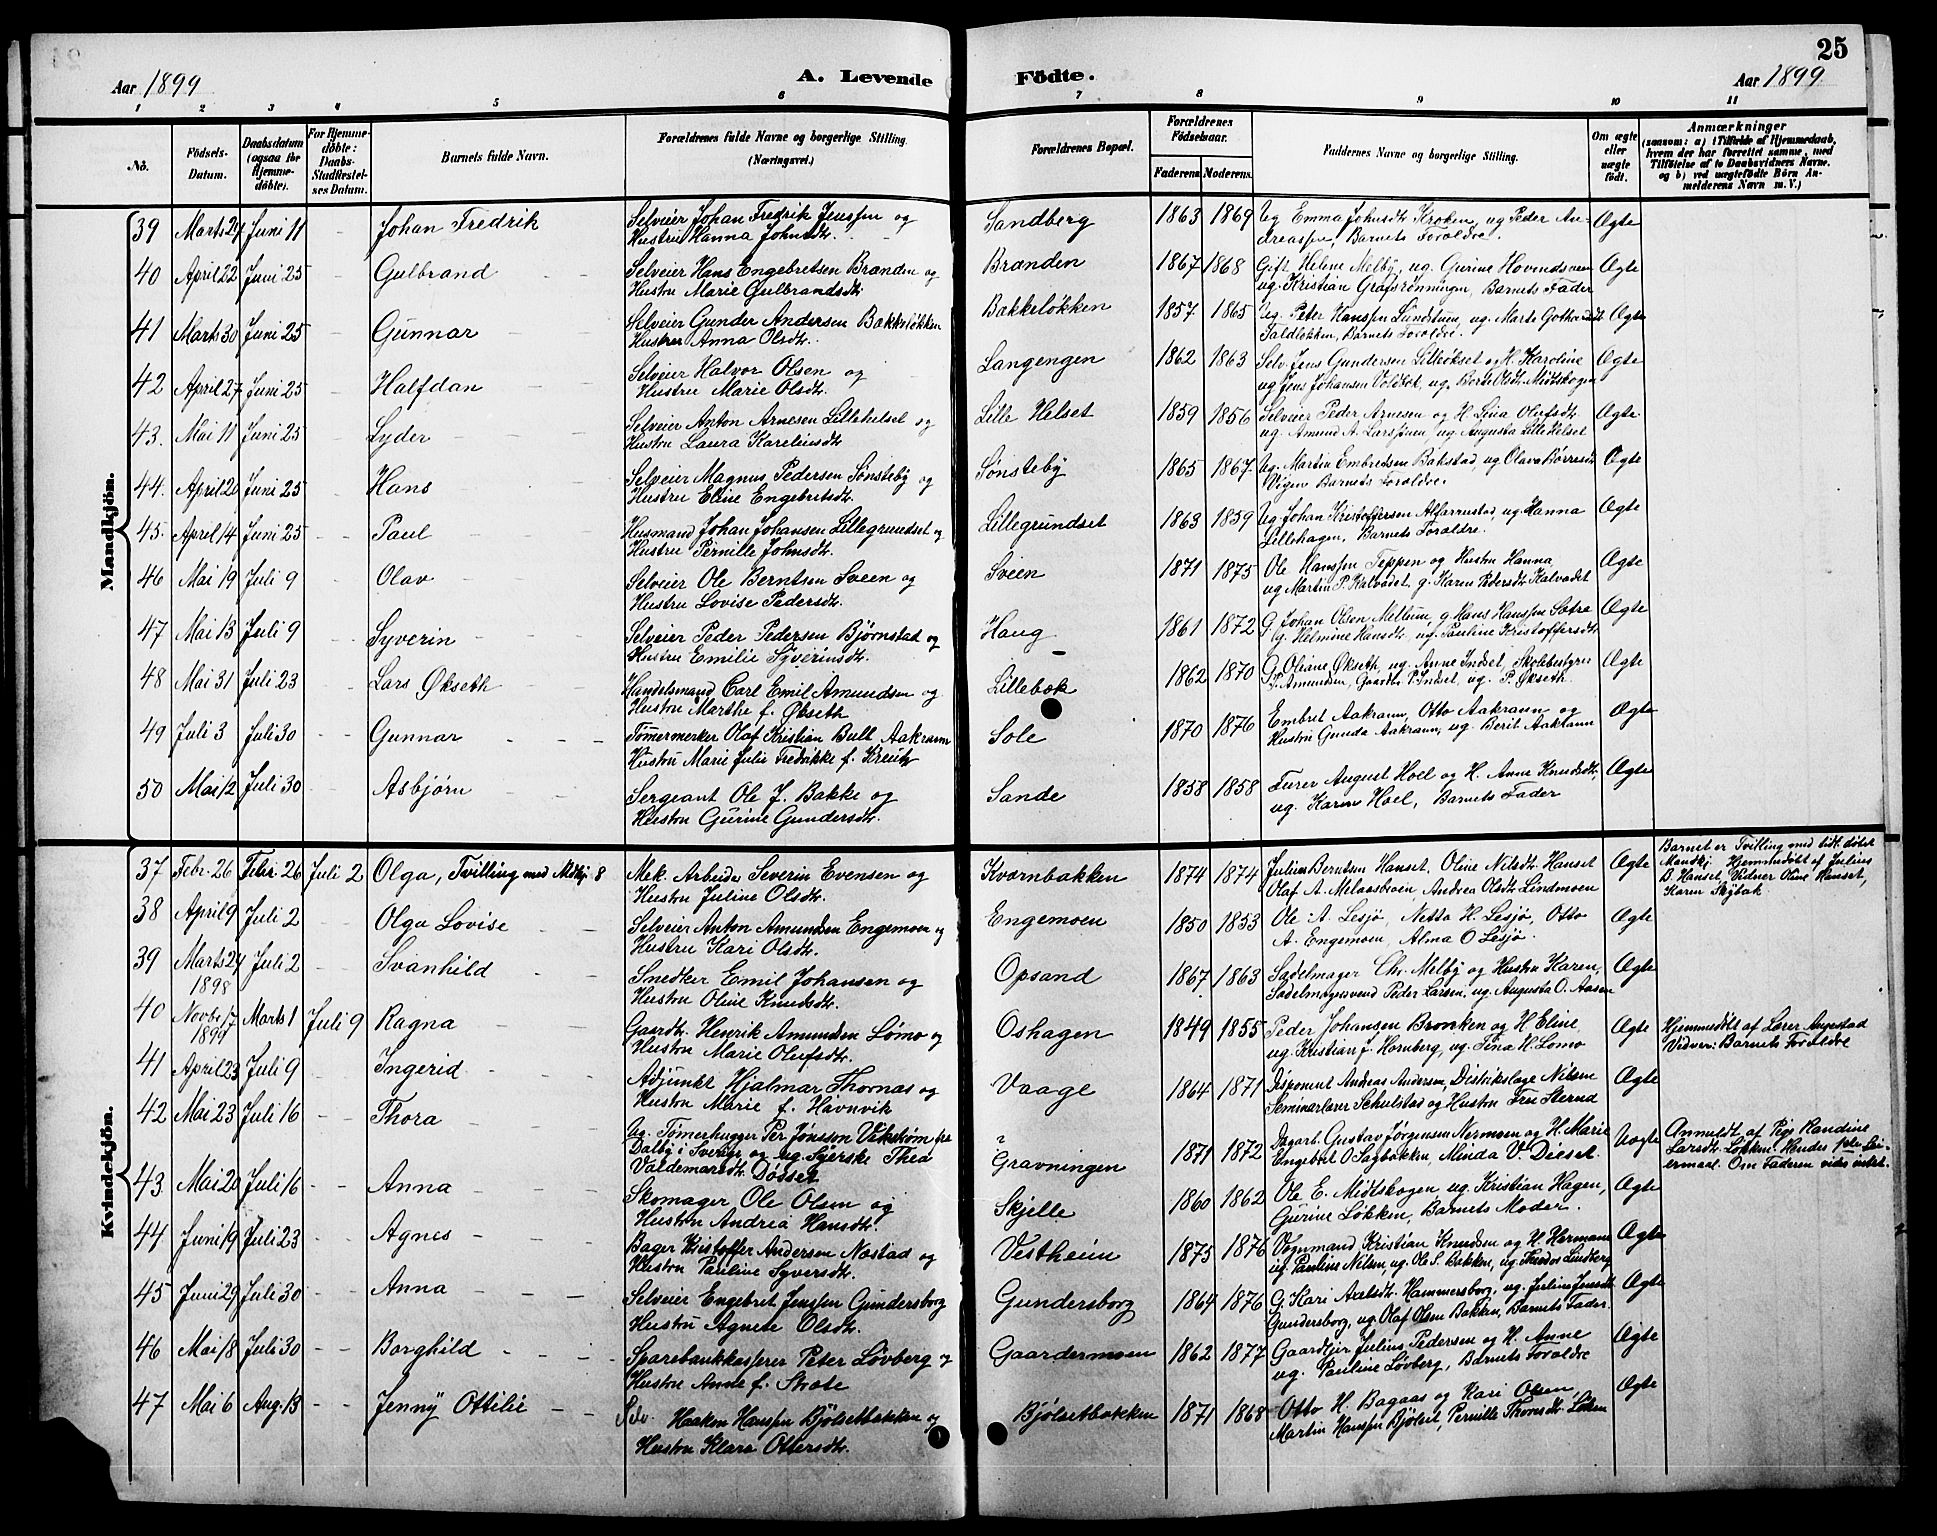 25
Aar 1899 A. Levende Födte. Aar 1899
1 2 3 4 5 6 7 8 9 10 11
No. Fødsels-Datum. Daabsdatum (ogsaa for Hjemmedøbte). For Hjemmedøbte: Daabs-Stadfæstelses Datum. Barnets fulde Navn. Forældrenes fulde Navne og borgerlige Stilling. (Næringsvei.) Forældrenes Bopæl. Forældrenes Fødselsaar. Faderens Moderens. Faddernes Navne og borgerlige Stilling. Om ægte eller uægte født. Anmærkninger
(saasom: a) i Tilfælde af Hjemmedaab,
hvem der har forrettet samme, med
Tilføielse af to Daabsvidners Navne,
og b) ved uægtefødte Börn An-
melderens Navn m. V.)
Mandkjön.
39 Marts 24 Juni 11 Johan Fredrik Selveier Johan Fredrik Jenssen og Sandberg 1863 1869 Ug Emma Johnsdt. Kroken, ug Peder An- Ægte
Hustru Hanna Johnsdt. dreassen, Barnets Forældre.
40 April 22 Juni 25 Gulbrand Selveier Hans Engebretsen Branden og Branden 1867 1868 Gift Helene Melby, ug. Gurine Hovendsveen Ægte
Hustru Marie Gulbrandsdt. ug. Kristian Grafsrønningen, Barnets Fader
41 Marts 30 Juni 25 Gunnar Selveier Gunder Andersen Bakkeløkken Bakkeløkken 1857 1865 Ug. Peter Hanssen Lundstum, ug. Marte Ægte
Hustru Anna Olsdt. Barnets Forældre.
42 April 27 Juni 25 Halfdan Selveier Halvor Olsen og Langengen 1862 1863 Selv. Jens Gundersen Lilløkset og H. Karoline Ægte
Hustru Marie Olsdt. ug Jens Johansen Voldbok, ug. Berte Olsdt. Midtskogen
43. Mai 11 Juni 25 Lyder Selveier Anton Arnesen Lillehelset og Lille Helset 1859 1856 Selveier Peder Arnesen og H. Lina Olufsdt. Ægte
Hustru Laura Karelinsdt. ug. Amund A. ug Augusta Lille Helset
44. April 20 Juni 25 Hans Selveier Magnus Pedersen Sønsteby og Sønsteby 1865 1867 Ug. Martin Embretsen Bakstad, ug Olava Ægte
Hustru Eline Engebretsdt. Vigen Barnets Forældre.
45. April 14 Juni 25 Paul Husmand Johan Johansen Lillegrundset og Lillegrundset 1863 1859 Ug Johan Kristoffersen Alfarrustad, ug Hanna Ægte
Hustru Pernille Johnsdt. Lillehagen, Barnets Forældre.
46 Mai 19 Juli 9 Olav Selveier Ole Berntsen Sveen og Sveen 1871 1875 Ole Hanssen Teppen og Hustru Hanna, Ægte
Hustru Lovise Pedersdt. ug Martin P. Kalvadet, g. Karen Pedersdt Kalvadet
47 Mai 13 Juli 9 Syverin Selveier Peder Pedersen Bjørnstad og Haug 1861 1872 G Johan Olsen Mellum, g Hans Hanssen Sætre Ægte
Hustru Emilie Syverinsdt. Ug. Helmine Hansdt. ug. Pauline Kristoffersdt.
48 Mai 31 Juli 23 Lars Økseth Handelsmand Carl Emil Amundsen og Lillebæk 1862 1870 G Oliane Økseth, ug. Anne Indset, Skolebestyrer Ægte
Hustru Marthe f. Økseth P. Amundsen, Gaardbr. P. Indset, ug. P. Økseth.
49 Juli 3 Juli 30 Gunnar Tømmermerker Olaf Kristian Bull Aakrann Sole 1870 1876 Embret Aakrann, Otto Aakrann og Ægte
Hustru Marie Julie Fredrikke f. Kreutz Hustru Gunda Aakrann, ug. Berit Aakrann
50 Mai 12 Juli 30 Asbjørn Sergeant Ole J. Bakke og Sande 1858 1858 Furer August Hoel og H. Anne Knudsdt. Ægte
Hustru Gurine Gundersdt. ug. Karen Hoel, Barnets Fader
Kvindekjön.
37 Febr. 26 Febr. 26 Juli 2 Olga, Tvilling med Mdkj. 8 Mek. Arbeider Severin Evensen og Kværnbakken 1874 1874 Julius Berntsen Hanset, Oline Nilsdt. Hanset Ægte Barnet er Tvilling med lidt. døbt
Hustru Juline Olsdt. Olaf A. Melaasveen, Andrea Olsdt. Lindmoen Mandkj. Hjemmedøbt af Julius
B. Hanset, Vidner Oline Hanset,
Karen Skybak
38 April 9 Juli 2 Olga Lovise Selveier Anton Amundsen Engemoen og Engemoen 1850 1853 Ole A. Lesjø, Netta H. Lesjø, Otto Ægte
Hustru Kari Olsdt. A. Engemoen, Alma O Lesjø.
39 Marts 24 Juli 2 Svanhild Snedker Emil Johansen og Opsand 1867 1863 Sadelmager Chr. Melby og Hustru Karen, Ægte
Hustru Oline Knudsdt. Sadelmagersvend Peder Larsen, ug Augusta O. Aasen
1898
40 Novbr. 17 Marts 1 Juli 9 Ragna Gaardbr. Henrik Amundsen Lømo og Oshagen 1849 1855 Peder Johansen Bronken og H Eline, Ægte Hjemmedøbt af Lærer Angestad
Hustru Marie Olufsdt. ug. Kristian J. Hornberg, ug. Tina H. Lomo Vidner: Barnets Forældre
1899
41 April 23 Juli 9 Ingerid Adjunkt Hjalmar Thornas og Vaage 1864 1871 Disponent Andreas Andersen, Distriktslæge Nilsen Ægte
Hustru Marie f. Havnvik Seminarlærer Schulstad og Hustru Fru Sterud
42 Mai 23 Juli 16 Thora Ug. Tømmerhugger Per Jönsson Vikström fra Gravningen 1871 1872 Dagarb. Gustav Jørgensen Nermoen og H. Marie Uægte Anmeldt af Pige Randine
Dalby i Sverige og ug. Syerske Thea Engebret O Sagbakken, Minda V. Dieset. Larsdt. Løkken. Hendes 1ste Lei-
Valdemarsdt. Døsset ermaal. Om Faderen vides intet.
43 Mai 20 Juli 16 Anna Skomager Ole Olsen og Skjelle 1860 1862 Ole E. Midtskogen, ug. Kristian Hagen, Ægte
Hustru Andrea Hansdt. Gurine Løkken, Barnets Moder.
44 Juni 19 Juli 23 Agnes Bager Kristoffer Andersen Næstad og Vestheim 1875 1876 Vognmand Kristian Knudsen og H. Hermana Ægte
Hustru Pauline Syversdt. ug. Pauline Nilsen, ug. Ole S. Bakken, ug. Lindberg
45 Juni 29 Juli 30 Anna Selveier Engebret Jenssen Gundersborg Gundersborg 1864 1876 G. Kari Axelsdt. Hammersborg, ug. Juline Jensdt. Ægte
Hustru Agnete Olsdt. Gundersborg, ug. Olaf Olsen Bakken, Barnets Fader.
46 Mai 18 Juli 30 Borghild Sparebankkasserer Peter Løvberg og Gaardermoen 1862 1877 Gaardejer Julius Pedersen og H. Anne Ægte
Hustru Anne f. Stræte ug. Pauline Løvberg, Barnets Forældre
47 Mai 6 Aug. 13 Jenny Ottilie Selv. Haaken Hanssen Bjølsetbakken og Bjølsetbakken 1871 1868 Otto H. Bagaas og Kari Olsen, Ægte
Hustru Klara Ottersdt. Martin Hanssen Bjølset, Pernille Thoresdt. Løken